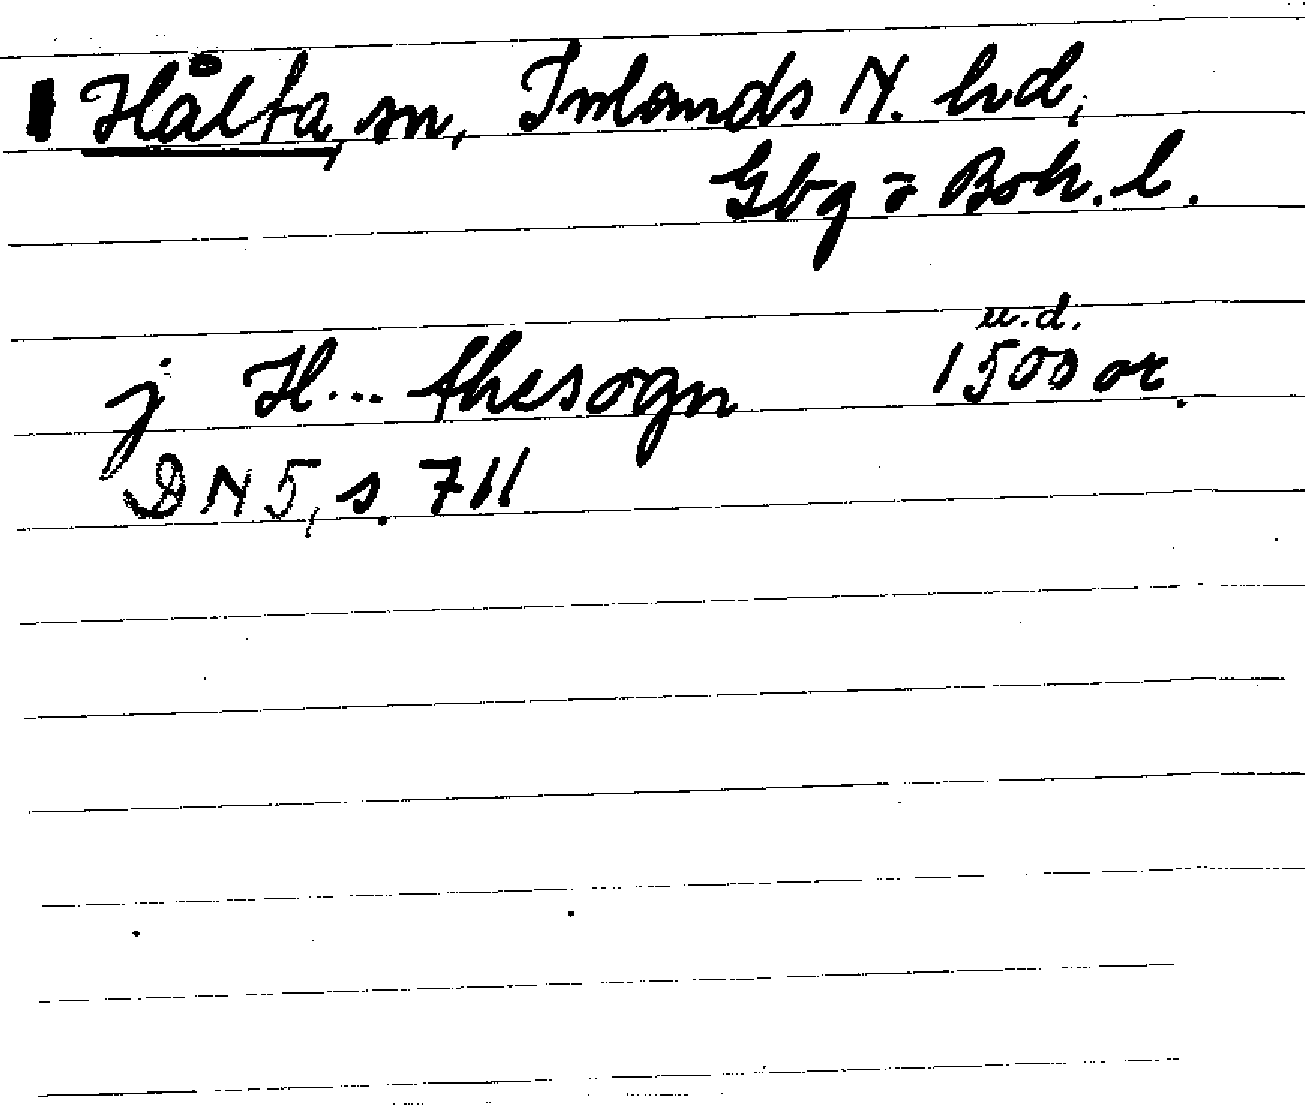 Hålta, sn, Inlands N. hd,
Gbg o Boh. l.
u.d.
j H... thesogn 1500 or.
DN 5, s. 711